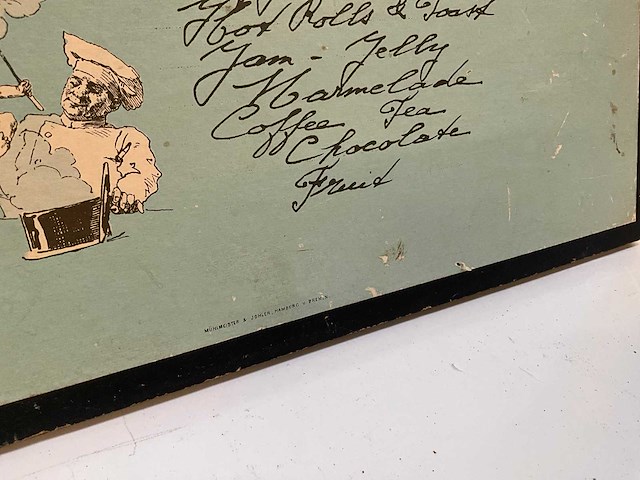 Hot Rolls & Toast
Jam - Jelly
Marmelade
Coffee Tea
Chocolate
Fruit
MÜHLMEISTER & JOHLER, HAMBURG - BREMEN